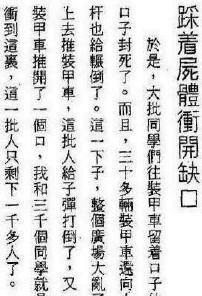 踩着屍體衝開缺口
於是，大批同學們往裝甲車留着口子的
口子封死了。而且，三十多輛裝甲車邊向人
杆也給輾倒了。這一下子，整個廣場大亂了
上去推裝甲車，這批人給子彈打倒了，又
裝甲車推開了一個口，我和三千個同學就是
衝到這裏，這一批人只剩下一千多人了。